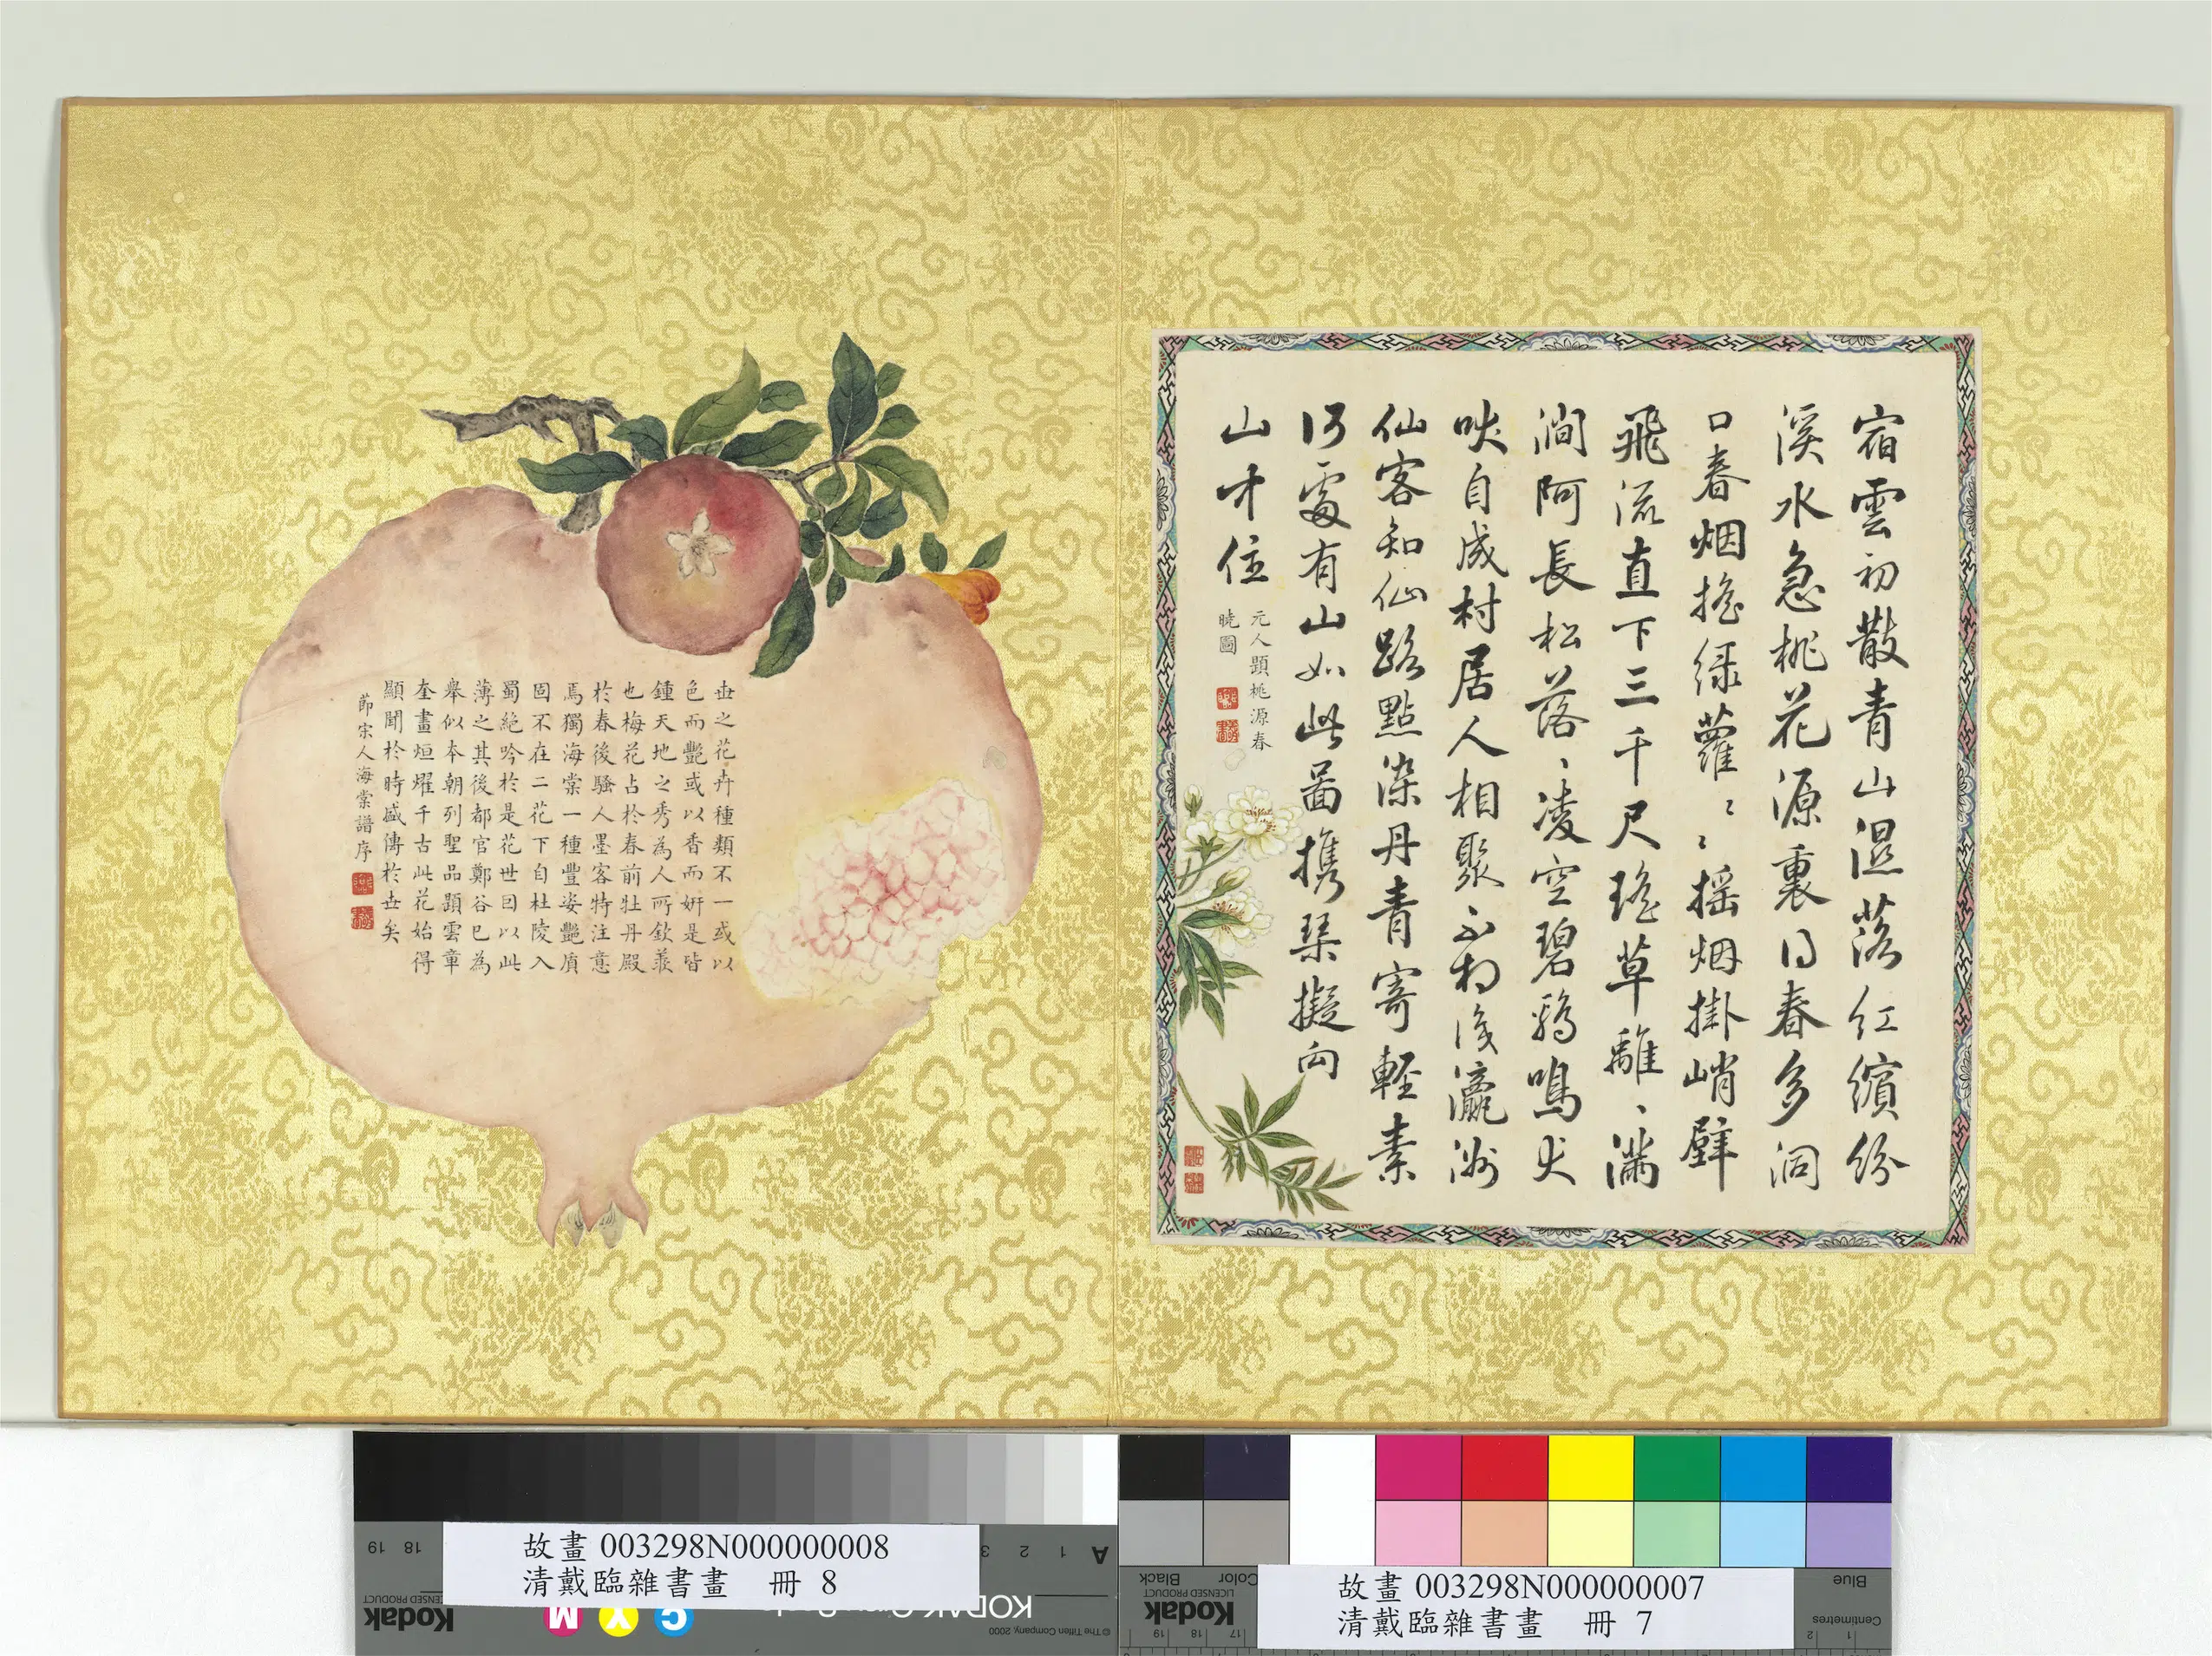 宿雲初散青山濕落紅繽紛
溪水急桃花源裏得春多洞
口春烟搖綠蘿〻〻搖烟掛峭壁
飛流直下三千尺瑤草離〻滿
澗阿長松落〻凌空碧鷄鳴犬
吠自成村居人相聚不瀛洲
仙客知仙路點染丹青寄輕素
何處有山如此啚携琴擬向
山中住
元人題桃源春
曉圖
世之花卉種類不一或以
色而艷或以香而妍是皆
鍾天地之秀為人所欽羨
也梅花占於春前牡丹殿
於春後騷人墨客特注意
焉獨海棠一種豐姿艷質
固不在二花下自杜陵入
蜀絕吟於是花世因以此
薄之其後都官鄭谷已為
舉似本朝列聖品題雲章
奎畫烜耀千古此花始得
顯聞於時盛傳於世矣
節宋人海棠譜序
故畫 003298N000000008
清戴臨雜書畫 冊 8
故畫 003298N000000007
清戴臨雜書畫 冊 7
19 18
3 2 1 A
Kodak
LICENSED PRODUCT
M Y C
KODAK
© The Tiffen Company, 2000
Kodak
LICENSED PRODUCT
Color
Black
Blue
Centimetres
19 18 17
2 1